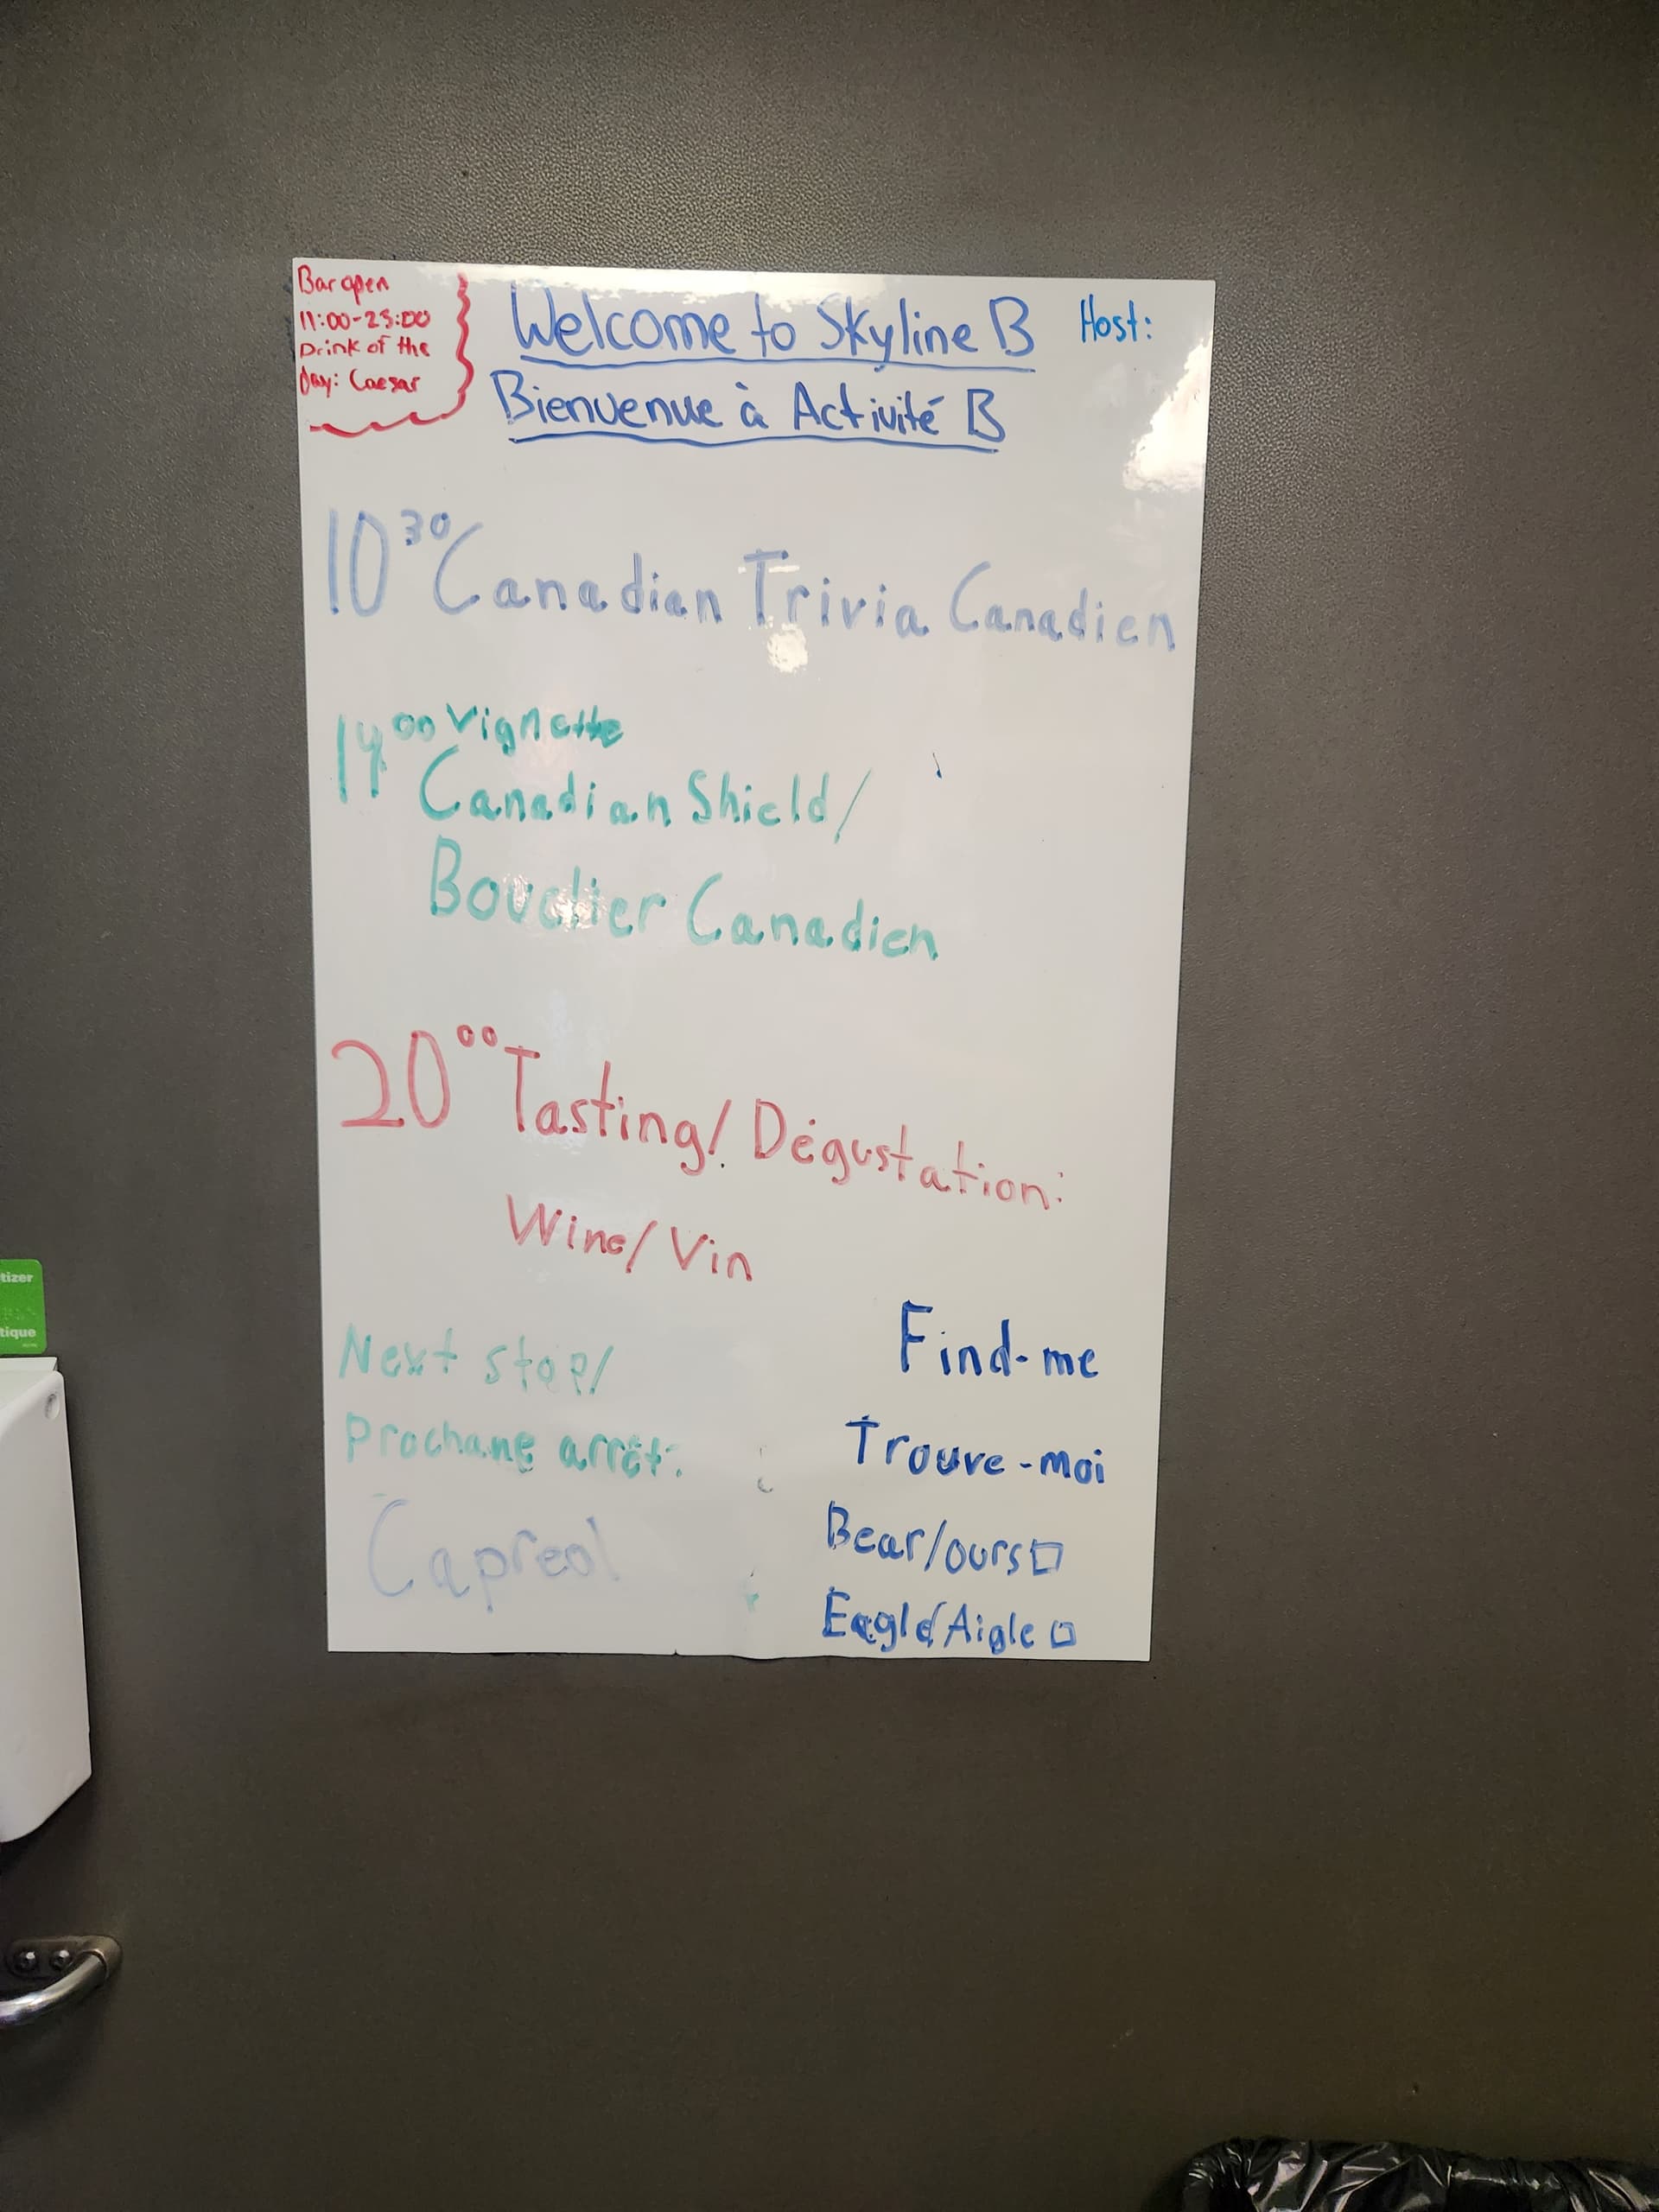 Bar open
11:00-23:00
Drink of the
day: Caesar
Welcome to Skyline B
Host:
Bienvenue à Activité B
10³⁰ Canadian Trivia Canadien
14⁰⁰ Vignette
Canadian Shield/
Bouclier Canadien
20⁰⁰ Tasting/Dégustation:
Wine/Vin
Next stop/
Prochane arrêt:
Capreol
Find-me
Trouve-moi
Bear/ours
Eagle/Aigle
tizer
tique